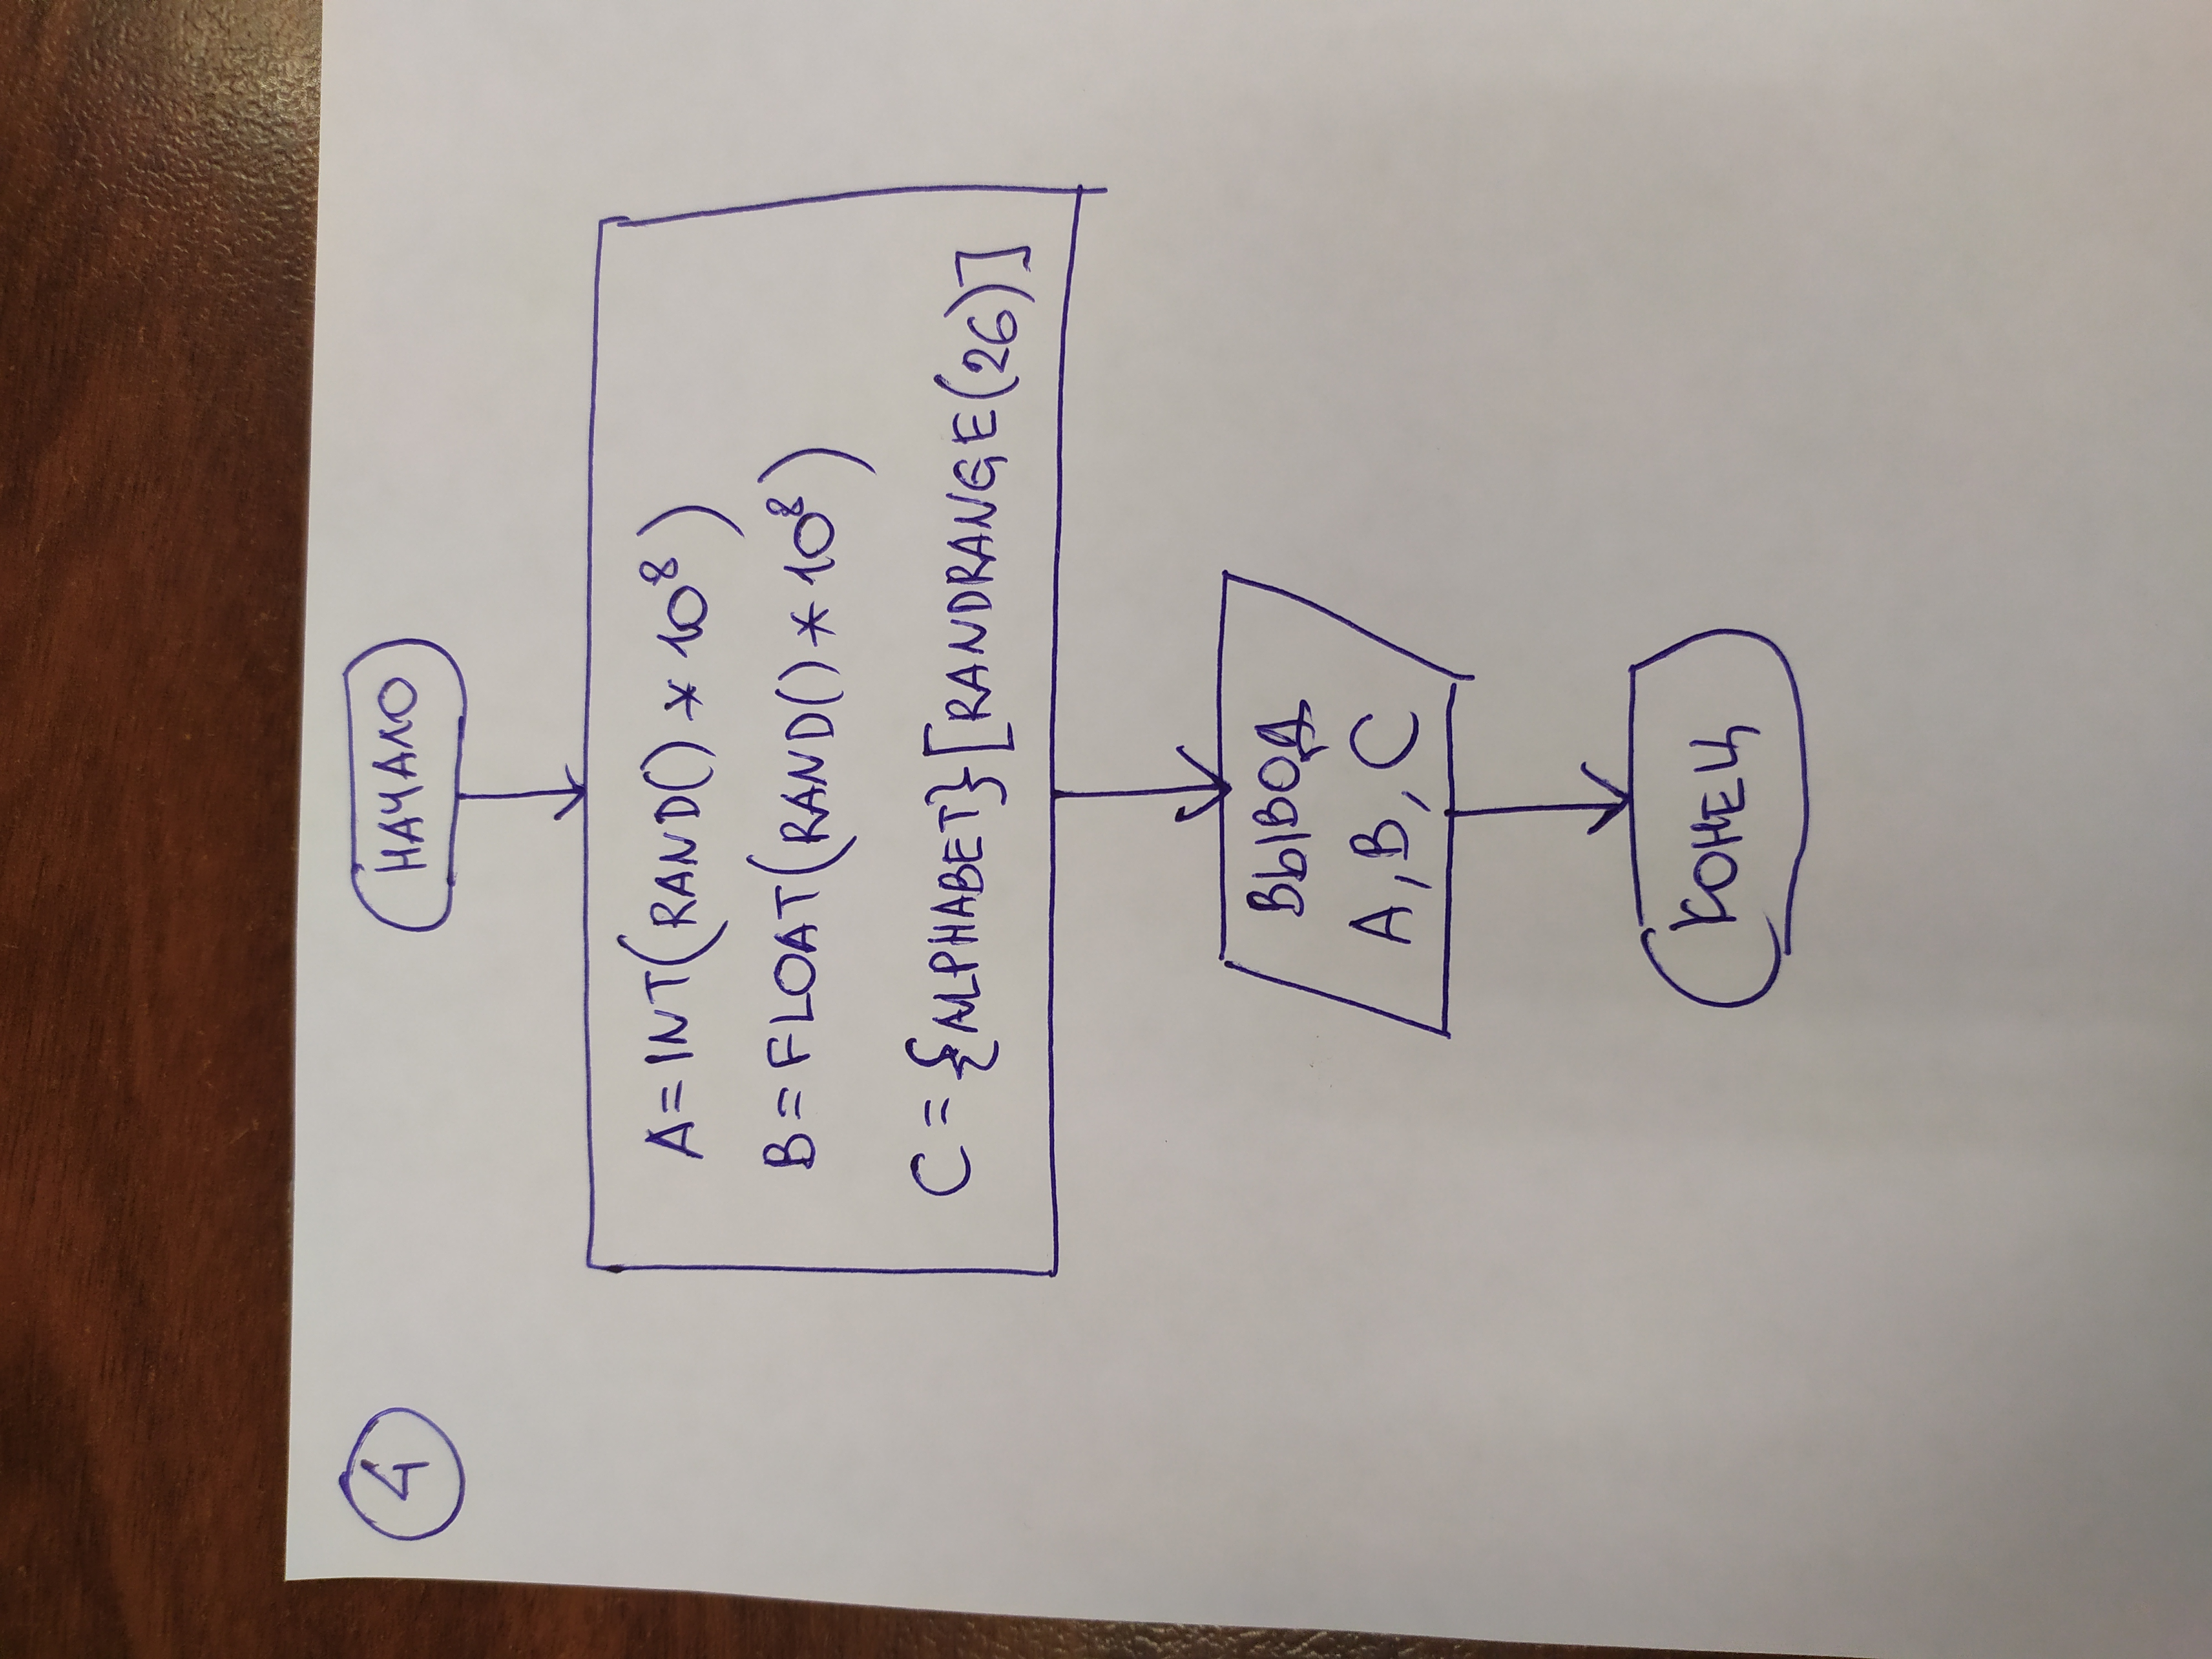 4
НАЧАЛО
A=INT(RAND()*10⁸)
B=FLOAT(RAND()*10⁸)
C={ALPHABET}[RANDRANGE(26)]
ВЫВОД
A,B,C
КОНЕЦ